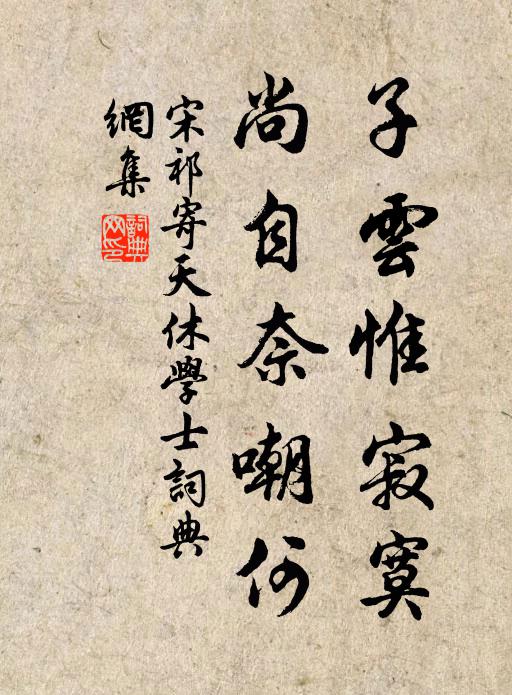 子雲惟寂寞
尚自奈嘲何
宋祁寄天休學士詞典
網集
詞典
网印